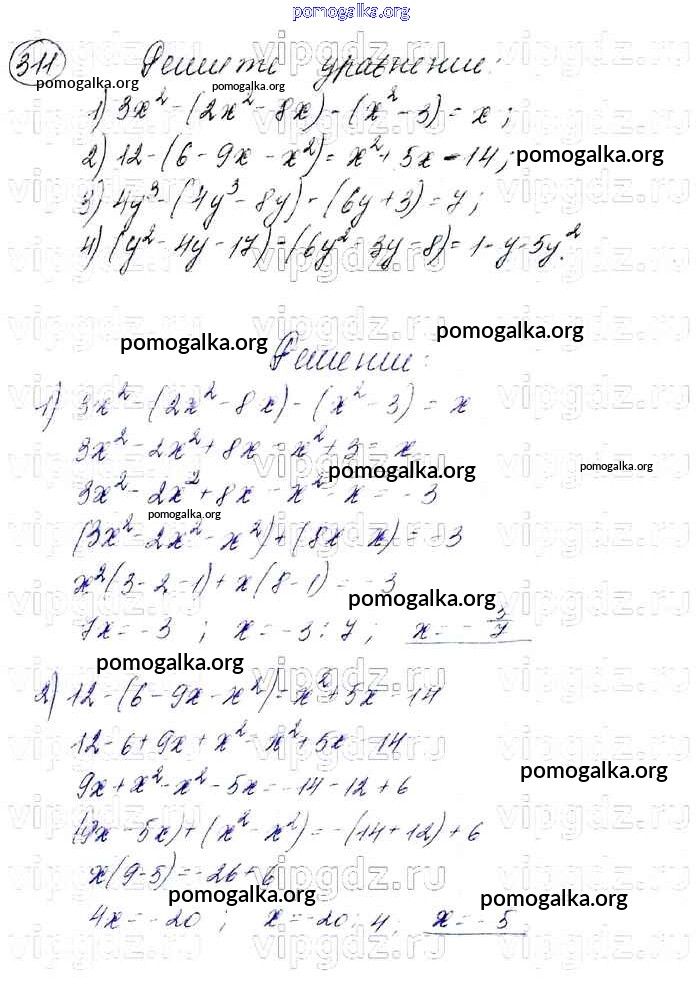 pomogalka.org
311 Решите уравнение:
pomogalka.org
1) 3x² - (2x² - 8x) - (x² - 3) = x;
2) 12 - (6 - 9x - x²) = x² + 5x - 14; pomogalka.org
3) 4y³ - (4y³ - 8y) - (6y + 3) = 7;
4) (y² - 4y - 17) - (6y² - 3y - 8) = 1 - y - 5y².
pomogalka.org pomogalka.org
Решение:
1) 3x² - (2x² - 8x) - (x² - 3) = x
3x² - 2x² + 8x - x² + 3 = x
pomogalka.org pomogalka.org
3x² - 2x² + 8x - x² - x = -3
pomogalka.org
(3x² - 2x² - x²) + (8x - x) = -3
x²(3 - 2 - 1) + x(8 - 1) = -3
pomogalka.org
7x = -3 ; x = -3 : 7 ; x = -3/7
pomogalka.org
2) 12 - (6 - 9x - x²) = x² + 5x - 14
12 - 6 + 9x + x² = x² + 5x - 14
pomogalka.org
9x + x² - x² - 5x = -14 - 12 + 6
(9x - 5x) + (x² - x²) = -(14 + 12) + 6
x(9 - 5) = -26 + 6
pomogalka.org pomogalka.org
4x = -20 ; x = -20 : 4 ; x = -5